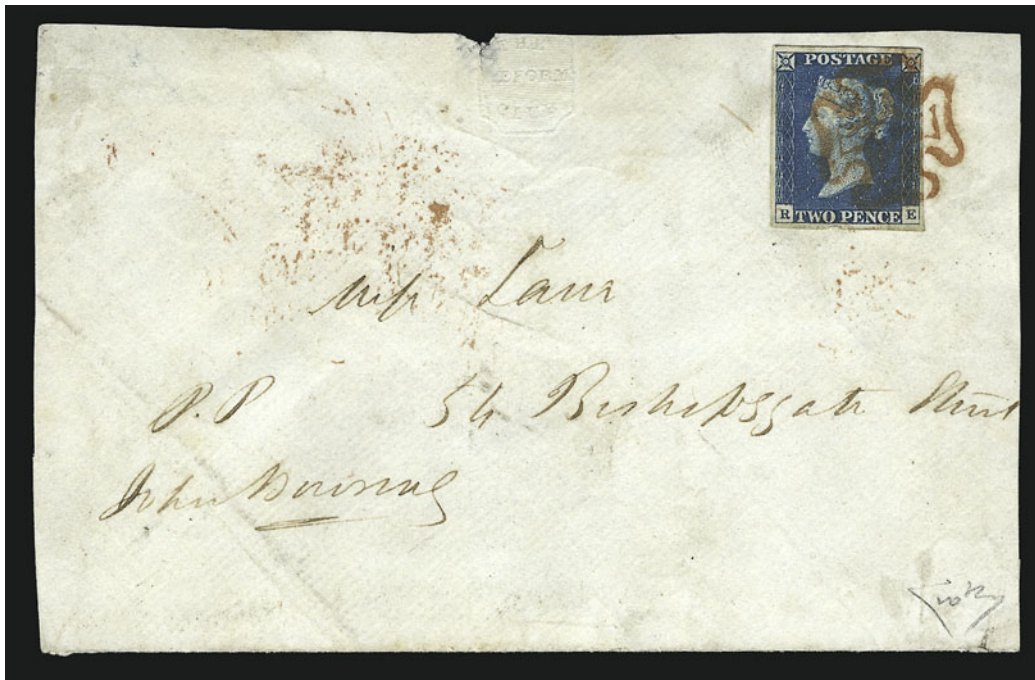 THE
REFORM
CLUB
POSTAGE
R TWO PENCE E
Miss Lane
P.P 54 Bishopsgate Street
John